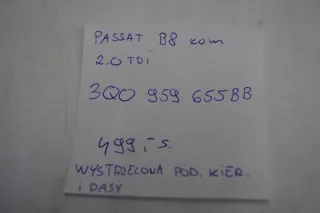 PASSAT B8 kom
2.0 TDI
3Q0 959 655BB
499,- s.
WYSTRZELONA POD. KIER.
i DASY